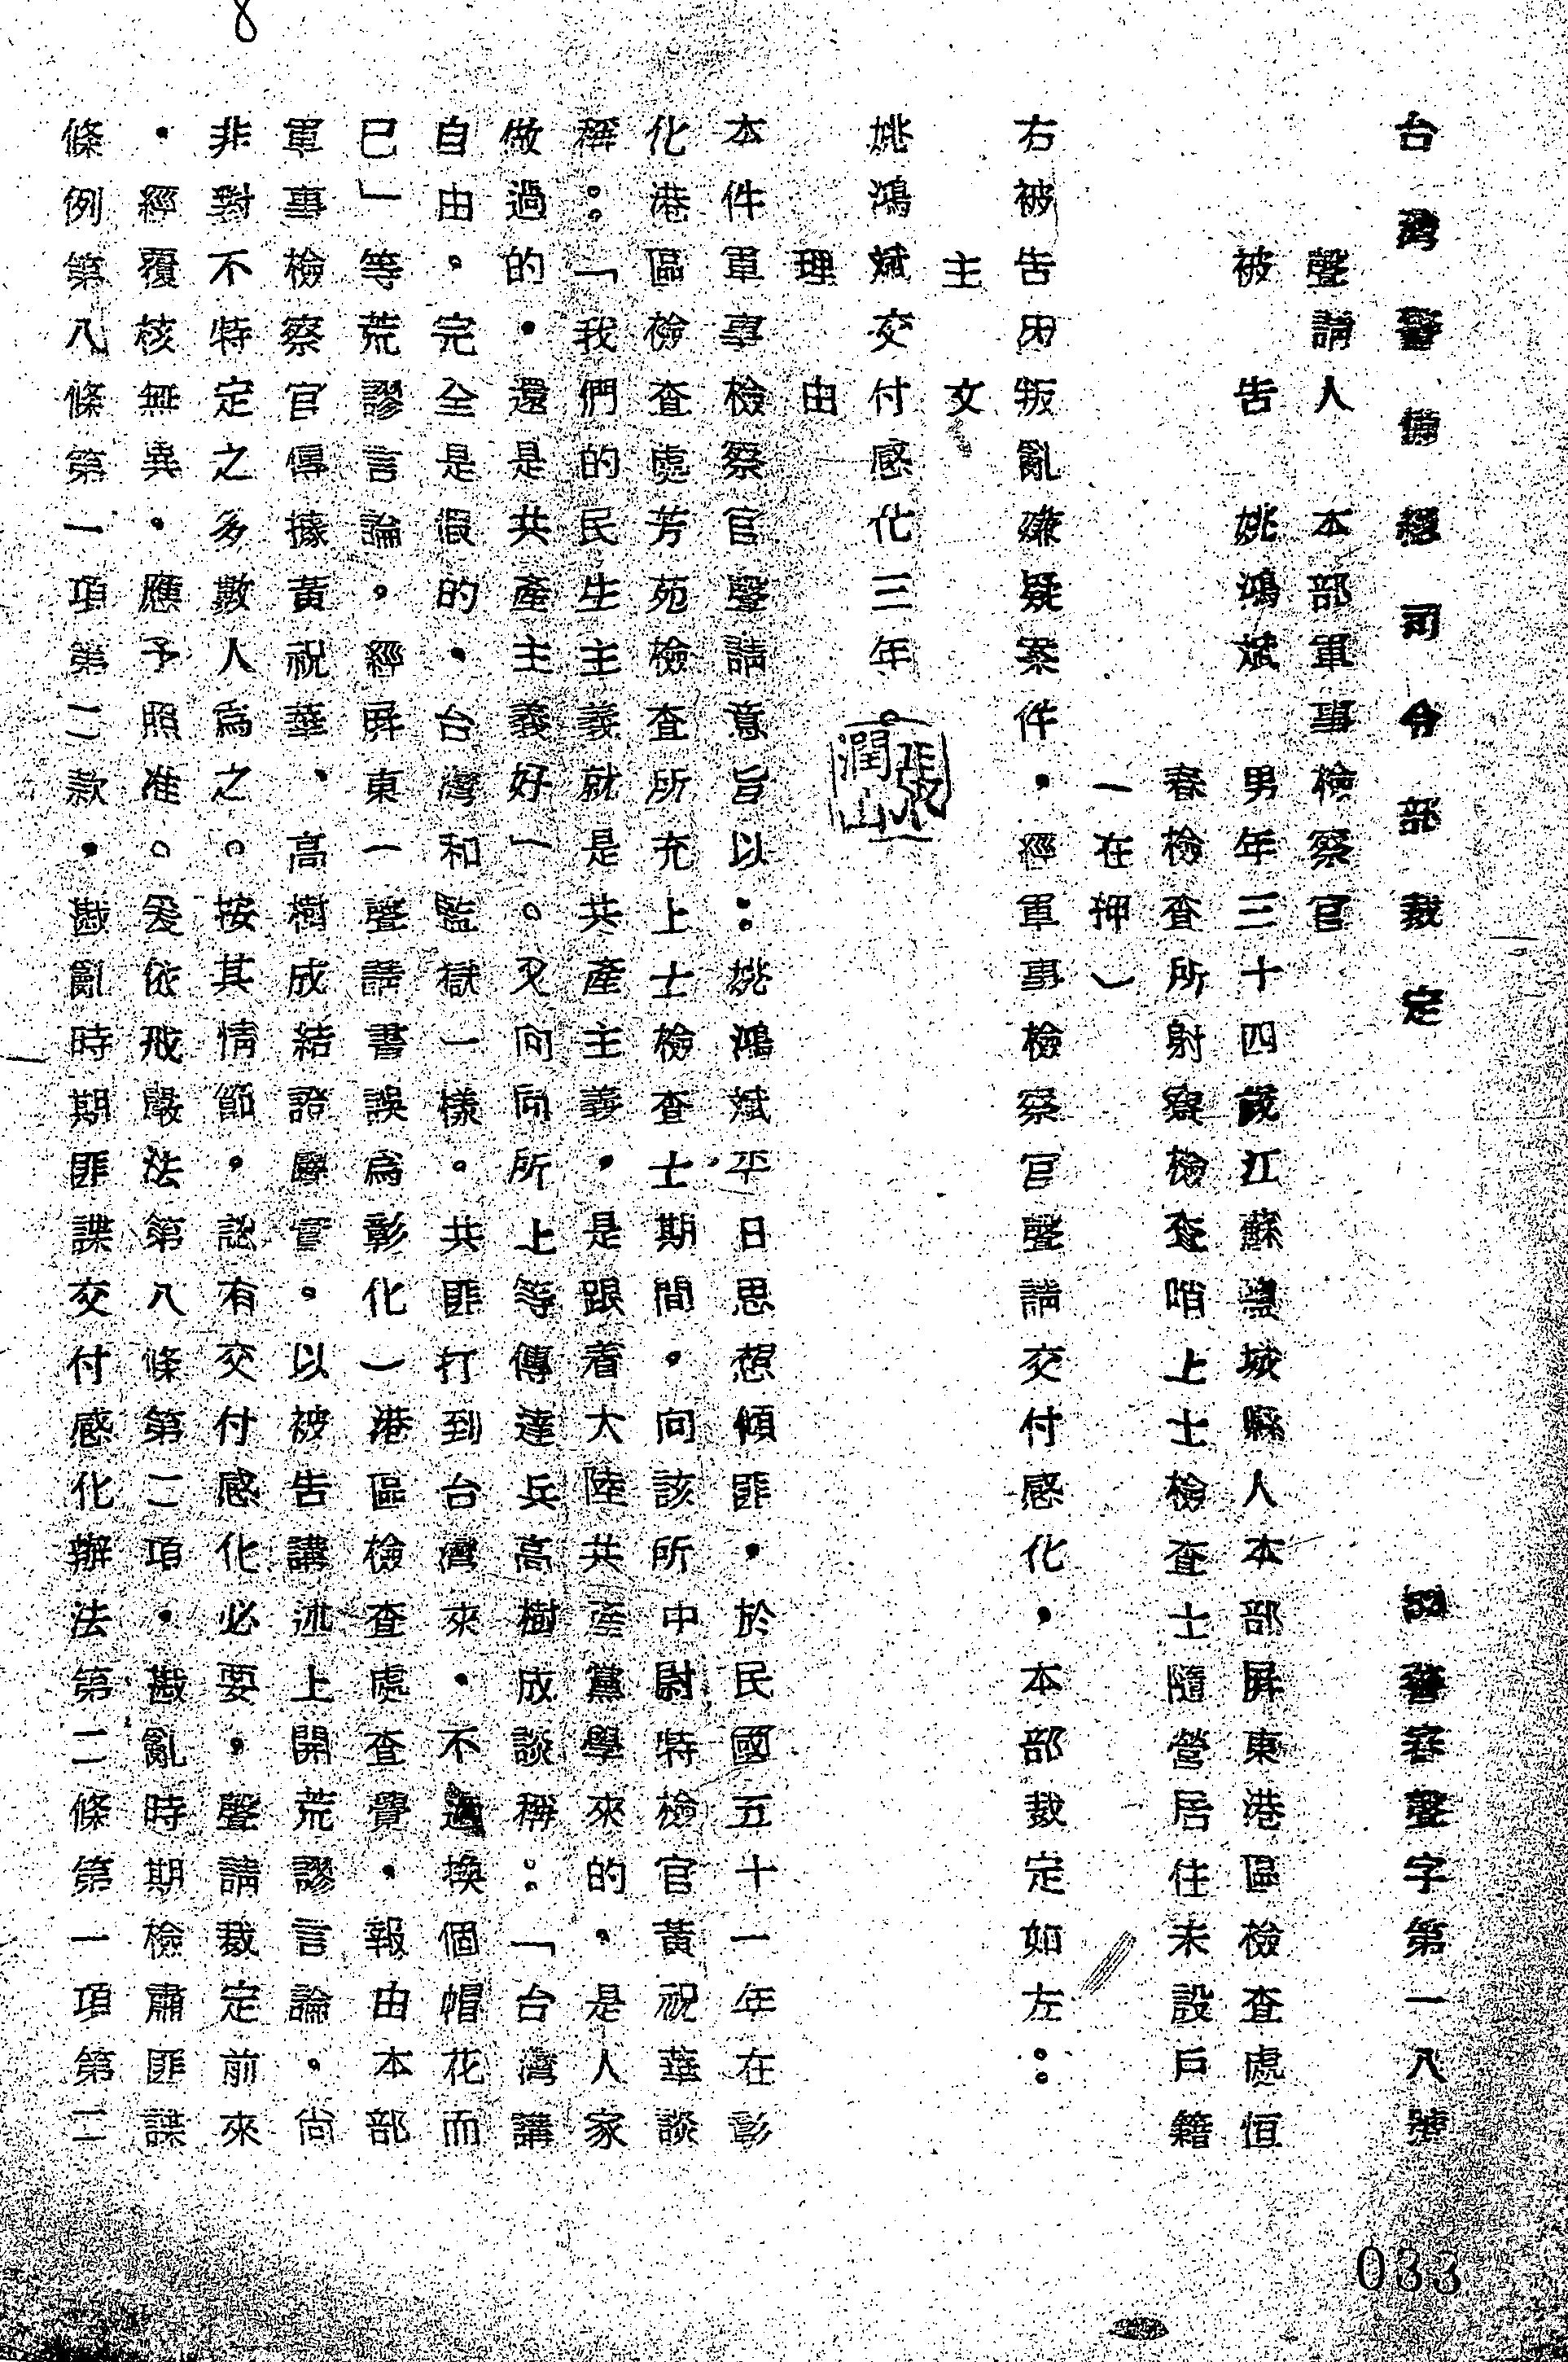 台灣警備總司令部裁定　警審聲字第一八號
聲請人　本部軍事檢察官
被告　姚鴻斌　男年三十四歲江蘇鹽城縣人本部屏東港區檢查處恒
春檢查所射寮檢查哨上士檢查士隨營居住未設戶籍
（在押）
右被告因叛亂嫌疑案件，經軍事檢察官聲請交付感化，本部裁定如左：
主文
姚鴻斌交付感化三年。
張潤山
理由
本件軍事檢察官聲請意旨以：姚鴻斌平日思想傾匪，於民國五十一年在彰
化港區檢查處芳苑檢查所充上士檢查士期間，向該所中尉特檢官黃祝華談
稱：「我們的民生主義就是共產主義，是跟着大陸共產黨學來的，是人家
做過的，還是共產主義好」。又向同所上等傳達兵高樹成談稱：「台灣講
自由。完全是假的，台灣和監獄一樣。共匪打到台灣來，不過換個帽花而
已」等荒謬言論。經屏東（聲請書誤為彰化）港區檢查處查覺，報由本部
軍事檢察官傳據黃祝華、高樹成結證屬實。以被告講述上開荒謬言論。尚
非對不特定之多數人為之。按其情節，認有交付感化必要，聲請裁定前來
，經覆核無異，應予照准。爰依戒嚴法第八條第二項，戡亂時期檢肅匪諜
條例第八條第一項第二款，戡亂時期匪諜交付感化辦法第二條第一項第二
033
8